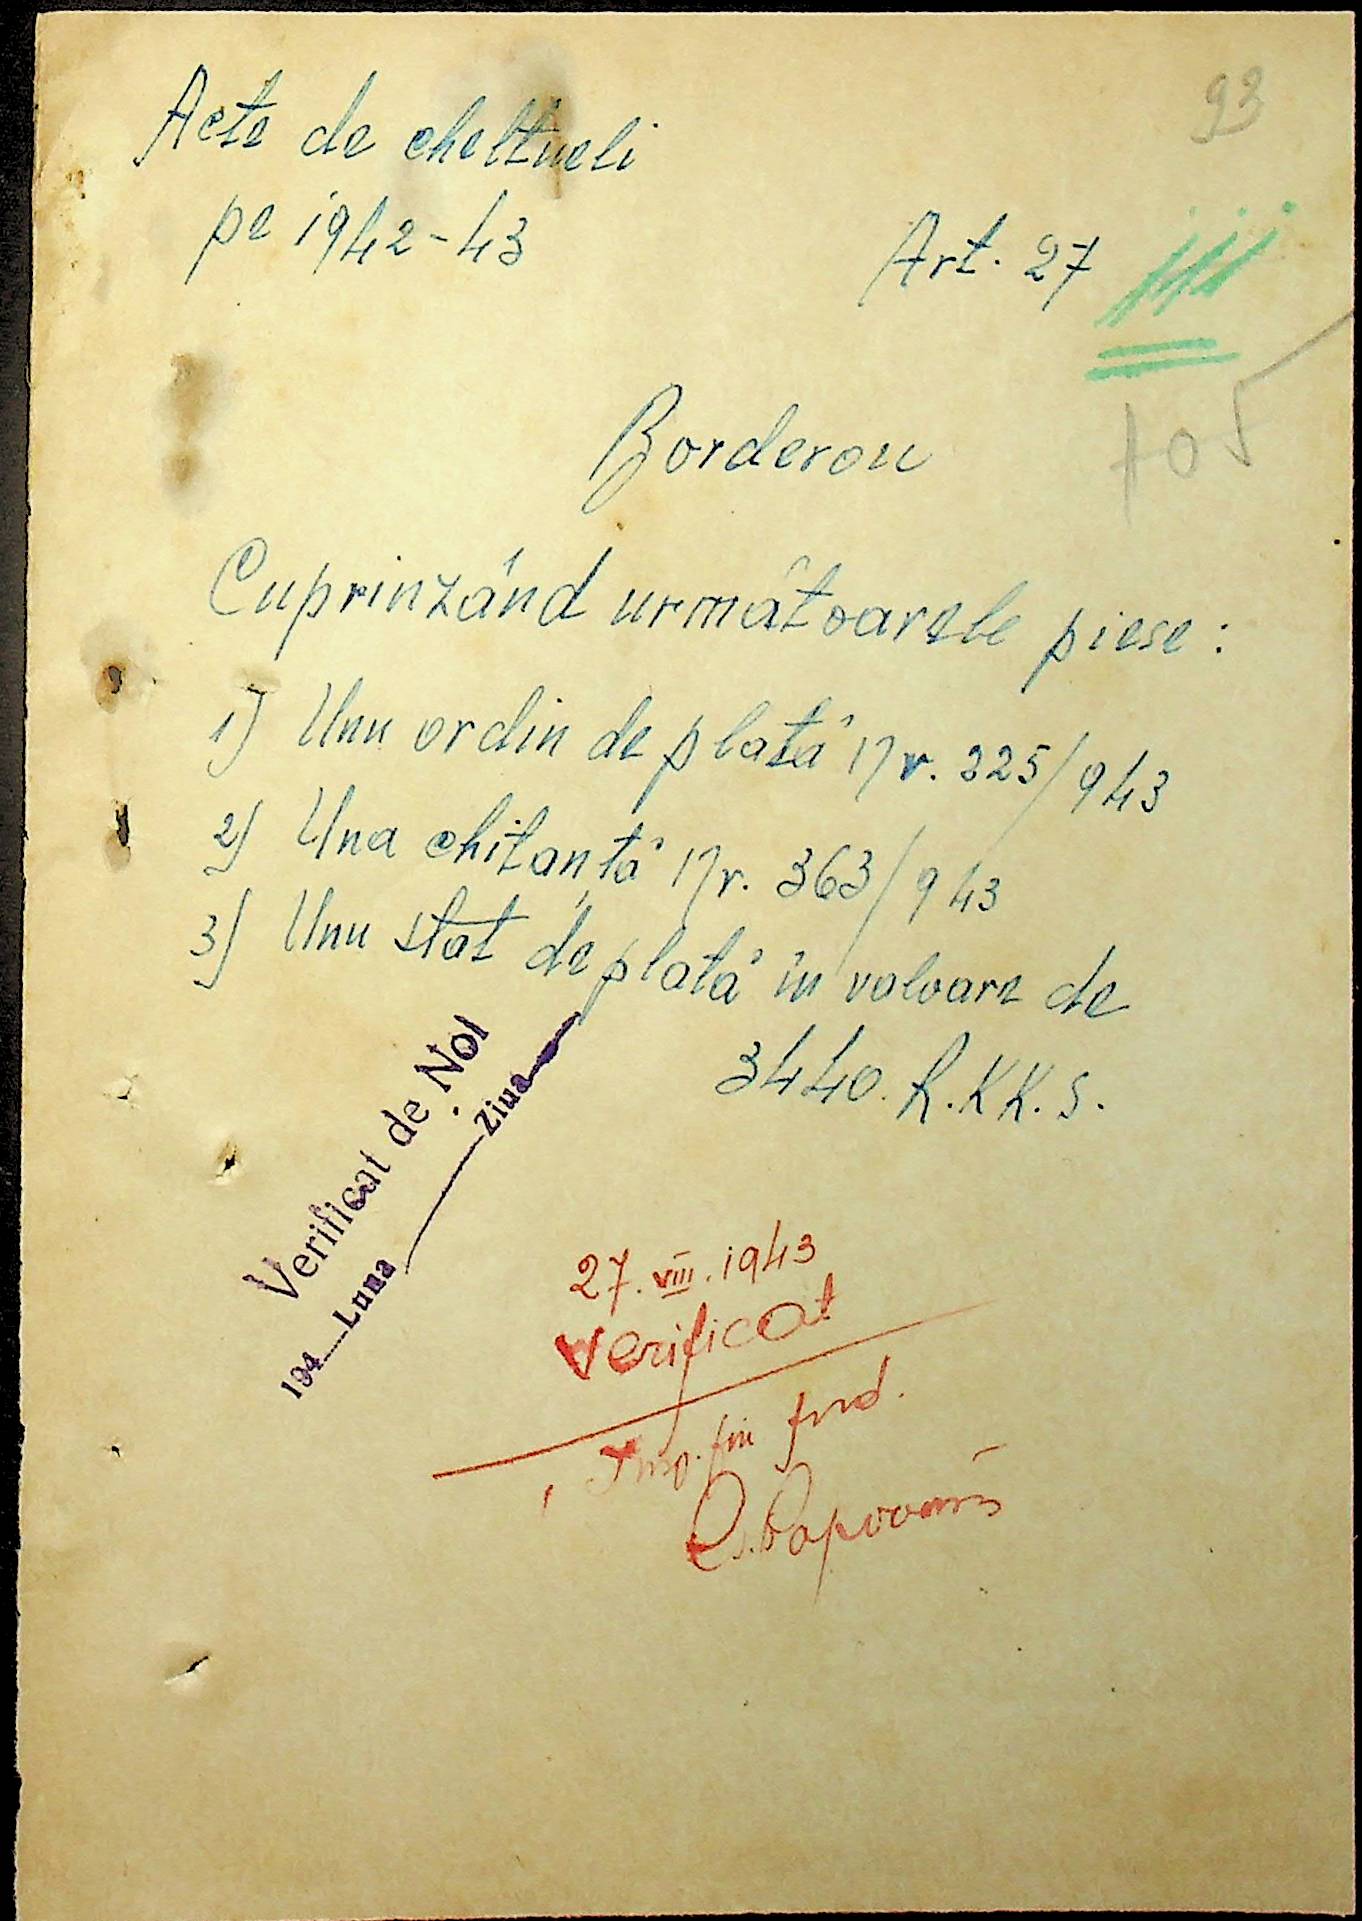 93
Acte de cheltueli
pe 1942-43
Art. 27
105
Borderou
Cuprinzând următoarele piese:
1) Unu ordin de plată Nr. 325/943
2) Una chitanță Nr. 363/943
3) Unu stat de plată în valoare de
3440. R.KK.S.
Verificat de Noi
194 Luna Ziua
27.VIII.1943
Verificat
fin